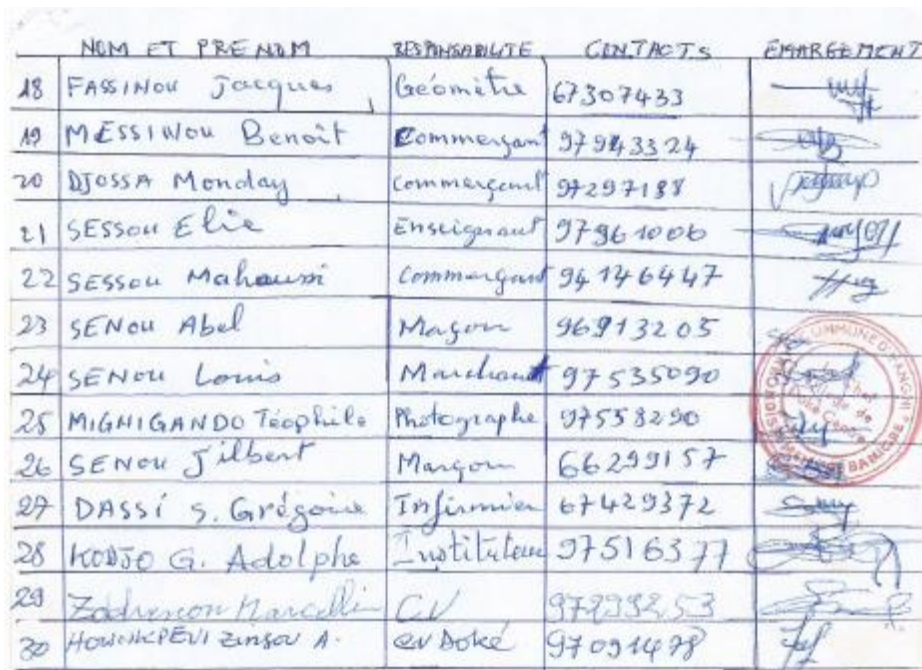 NOM ET PRENOM RESPONSABILITE CONTACTS EMARGEMENT
18 FASSINOU Jacques Géomètre 67307433
19 MESSINOU Benoît Commerçant 97943324
20 DJOSSA Monday Commerçant 97297188
21 SESSOU Elie Enseignant 97961006
22 SESSOU Mahoussi Commerçant 94146447
23 SENOU Abel Maçon 96913205
24 SENOU Louis Marchand 97535090
25 MIGNIGANDO Téophile Photographe 97558290
26 SENOU Jilbert Marçon 66299157
27 DASSI S. Grégoire Infirmier 67429372
28 KODJO G. Adolphe Instituteur 97516377
29 Marcellin CV 97299253
30 ZINSOU A. CV Doké 97091478
COMMUNE D'